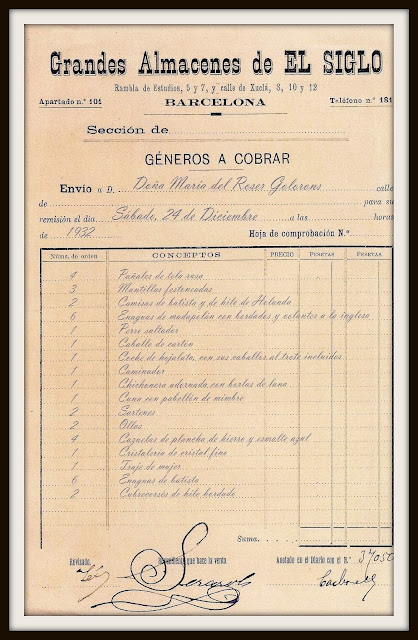 Grandes Almacenes de EL SIGLO
Rambla de Estudios, 5 y 7, y calle de Xuclá, 8, 10 y 12
Apartado n.º 101 BARCELONA Teléfono n.º 181
Sección de
GÉNEROS A COBRAR
Envío a D. Doña María del Roser Golorons calle
de para su
remisión el día Sábado, 24 de Diciembre a las horas
de 1932 Hoja de comprobación N.º
Núms. de orden CONCEPTOS PRECIO PESETAS PESETAS
4 Pañales de tela rusa
3 Mantillas festoneadas
2 Camisas de batista y de hilo de Holanda
6 Enaguas de madapolán con bordados y volantes a la inglesa
1 Perro saltador
1 Caballo de cartón
1 Coche de hojalata, con sus caballos al trote incluidos
1 Caminador
1 Chichonera adornada con borlas de lana
1 Cuna con pabellón de mimbre
2 Sartenes
2 Ollas
4 Cazuelas de plancha de hierro y esmalte azul
1 Cristalería de cristal fino
1 Traje de mujer
6 Enaguas de batista
2 Cubrecorsés de hilo bordado
Suma
Revisado, que hace la venta. Anotado en el Diario con el N.º 37050